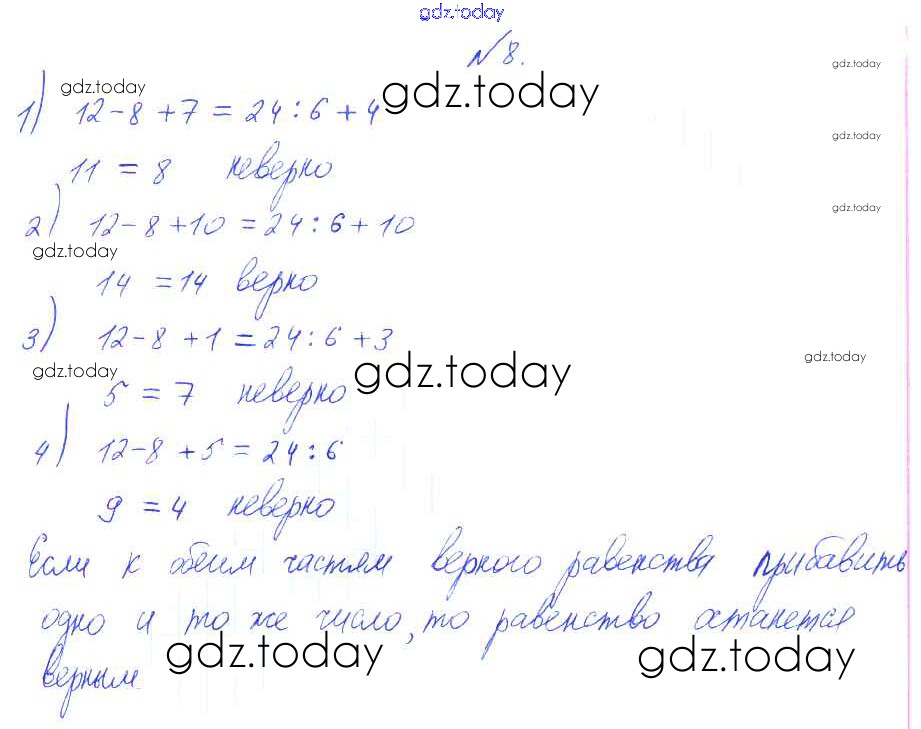 gdz.today
№ 8.
gdz.today
gdz.today
gdz.today
1) 12-8+7=24:6+4
gdz.today
11 = 8 неверно
gdz.today
2) 12-8+10=24:6+10
gdz.today
14 =14 верно
3) 12-8+1=24:6+3
gdz.today
gdz.today
gdz.today
5 = 7 неверно
4) 12-8+5=24:6
9 = 4 неверно
Если к обеим частям верного равенства прибавить
одно и то же число, то равенство останется
gdz.today
gdz.today
верным